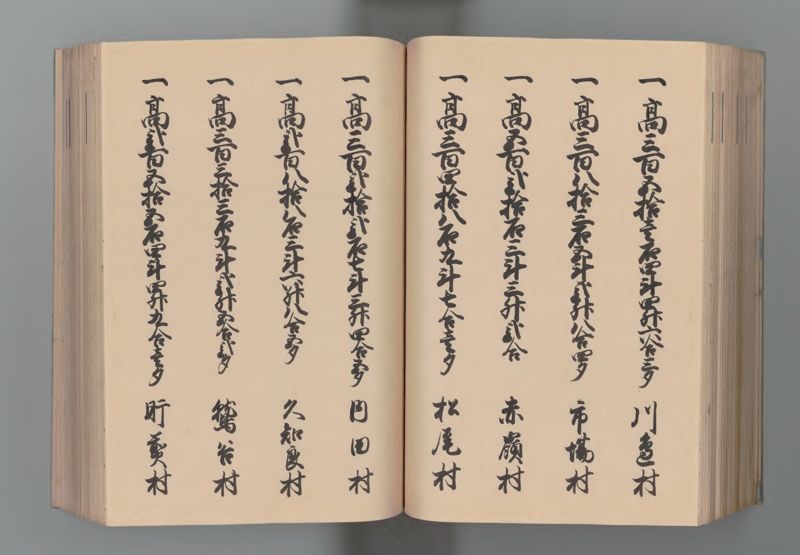 一高三百五拾壱石四斗四升六合三夕 川邉村
一高三百八拾三石五斗弐升八合四夕 市場村
一高五百弐拾石三斗三升弐合 赤嶺村
一高三百四拾八石九斗七合壱夕 松尾村
一高三百弐拾弐石七斗三升四合五夕 円田村
一高弐百八拾八石三斗六升八合五夕 久知良村
一高三百三拾三石九斗弐升五合弐夕 鷲谷村
一高弐百五拾五石四斗四升九合壱夕 村